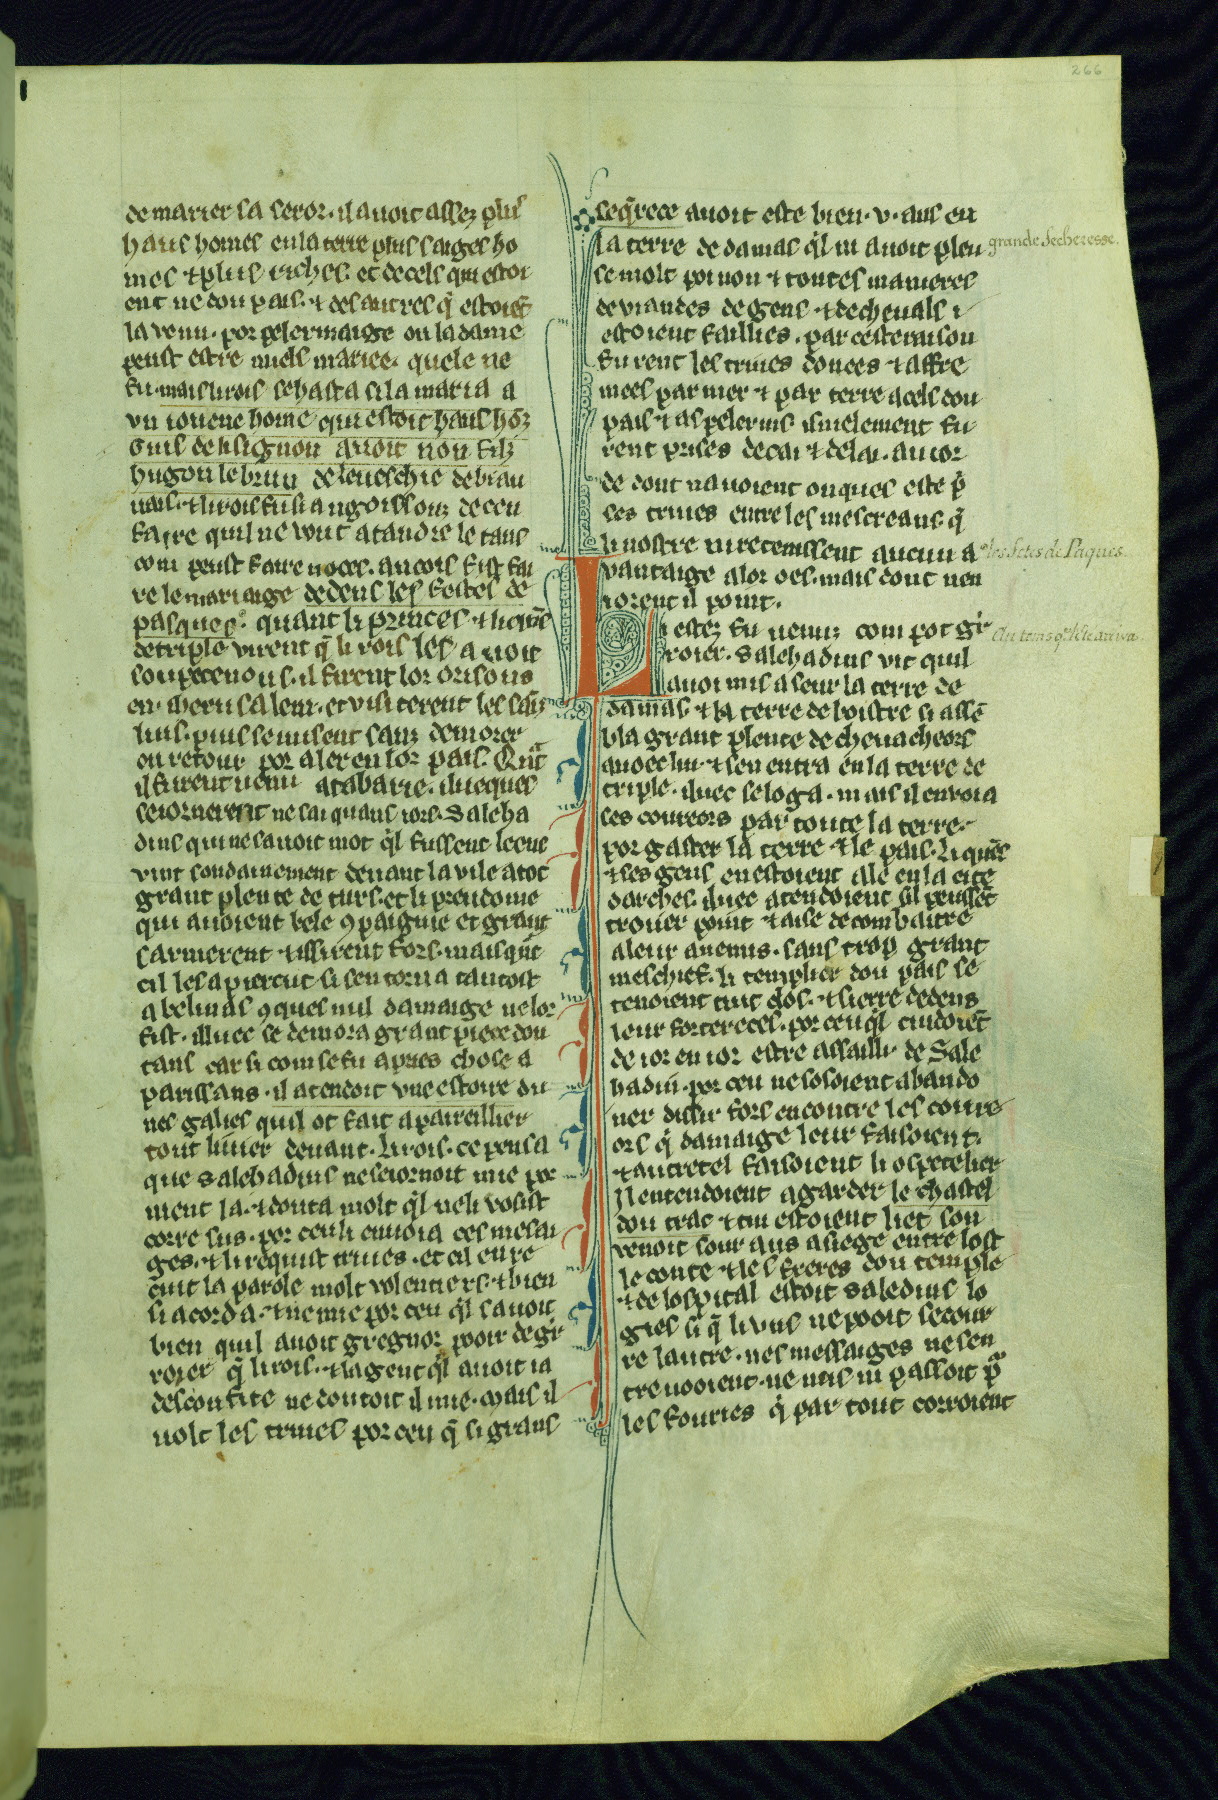 266
de marier sa seror· il avoit assez plus
haus homes en la terre plus saiges ho
mes ⁊ plus riches· et de cels qui estoi
ent ne dou pais· ⁊ des autres q̄ estoiēt
la venu· por pelermaige ou la dame
peust estre miels mariee· quele ne
fu· mais li rois se hasta si la maria a
vn iouene home qui estoit haus hōz
Guis de lisignon avoit non filz
hugon le brun de leveschie de biau
vais· ⁊ li rois fu si angoissouz de ceu
faire quil ne vout atandre le tans
com peust faire noces· ancois fist fai
re le mariaige dedens les festes de
pasques· quant li princes ⁊ li quēs
de triple virent q̄ li rois les avoit
soupecenous· il firent lor orisons
en iherusalem· et visiterent les sain
lius· puis se misent sanz demorer
ou retour por aler en lor pais· Qūt
il furent venu a tabarie· iluecques
seiornerent ne sai quans iors· Saleha
dins qui ne savoit mot q̄l fussent leenc
vint soudainement devant la vile a tot
grant plente de turs· et li preudome
qui avoient bele ꝯpaignie et grant
sarmerent ⁊ issirent fors· mais qūt
cil les apercut si sen torna tantost
a belinas ꝯques nul damaige ne lor
fist· illuec se demora grant piece dou
tans car si com se fu apres chose a
parissans· il atendoit une estoire du
nes galies quil ot fait apareillier
tout liuier devant· Li rois· ce pensa
que Salehadins ne seiornoit mie por
nient la· ⁊ douta molt q̄l ne li vosist
corre sus· por ceu li envoia ces mesai
ges· ⁊ li requist triues· et cil en re
cuit la parole molt volentiers· ⁊ bien
si acorda· ⁊ ne mie por ceu q̄l savoit
bien quil avoit gregnor pooir de gr
roier q̄ li rois· ⁊ la gent q̄l avoit ia
desconfite ne doutoit il mie· Mais il
uolt les triues por ceu q̄ si grans
seq̄rece avoit este bien· v· ans en
la terre de damas q̄l ni avoit pleu
se molt poi non ⁊ toutes manieres
de viandes de gens ⁊ de chevals i
estoient faillies· par ceste raison
furent les triues donees ⁊ affre
mees par mer ⁊ par terre a cels dou
pais ⁊ as pelerins isnelement fu
rent prises de cai ⁊ de lai· au ior
de dont navoient onques este p̄
ses triues entre les mescreans q̄
li nostre ni retenissent aucun a
vantaige a lor oes· mais dont nen
iorent il point·
Li estez fu venuz com pot gr
roier· Salehadins vit quil
avoi mis a seur la terre de
damas ⁊ la terre de bostre si assē
bla grant plente de chevacheors
avoec lui· ⁊ sen entra en la terre de
triple· iluec se loga· mais il envoia
ses coureors par toute la terre·
por gaster la terre ⁊ le pais· Li quēs
⁊ ses gens en estoient ale en la cite
darches· iluec atendoient sil peussēt
trouer point ⁊ aise de combattre
a leur anemis· sans trop grant
meschief· li templier dou pais se
tenoient tuit clos· ⁊ sierre dedens
leur forterces· por ceu q̄l cuidoiēt
de ior en ior estre assailli de Sale
hadin· por ceu ne sosoient abando
ner dissir fors encontre les coure
ors q̄ damaige leur faisoient·
⁊ autretel faisoient li ospetelier
Il entendoient a garder le chastel
dou crac ⁊ cui estoient liet son
venoit sour aus a siege entre lost
le conte ⁊ les freres dou temple
⁊ de lospital estoit saledins lo
gies si q̄ li uns ne pooit secour
re lautre· nes messaiges ne sen
trevooient· ne nus ni passoit p̄
les fouries q̄ par tout corroient
grande secheresse.
les fetes de Paques